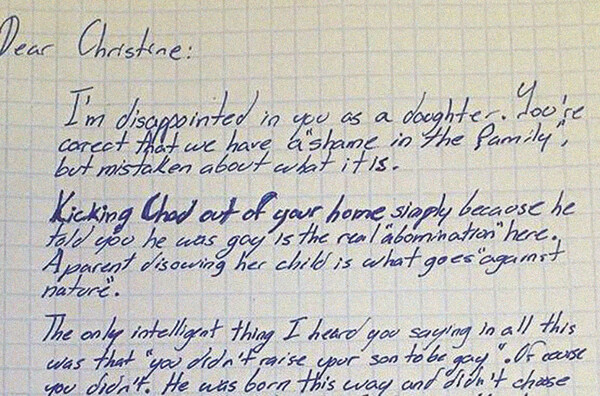 Dear Christine:
I'm disappointed in you as a daughter. You're
corect that we have a "shame in the family",
but mistaken about what it is.
Kicking Chad out of your home simply because he
told you he was gay is the real "abomination" here.
A parent disowing her child is what goes "against
nature".
The only intelligent thing I heard you saying in all this
was that "you didn't raise your son to be gay". Of couse
you didn't. He was born this way and didn't choose